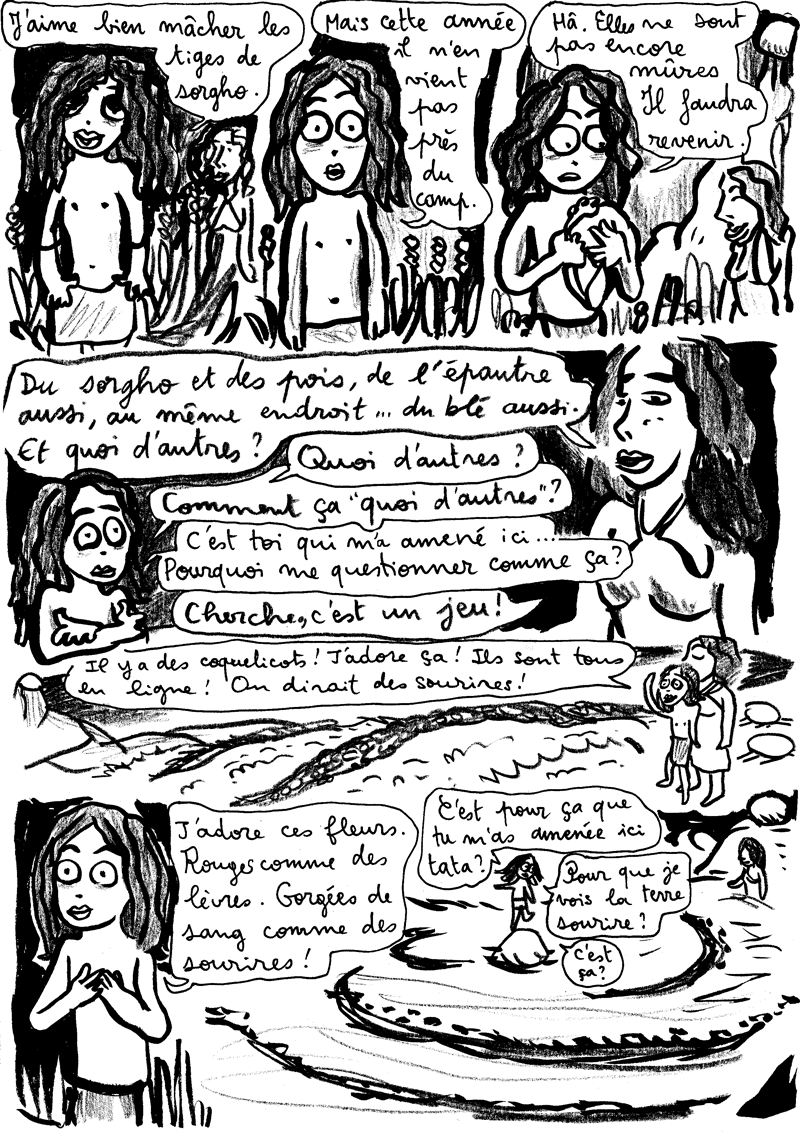 J'aime bien mâcher les
tiges de
sorgho.
Mais cette année
il n'en
vient
pas
près
du
camp.
Hâ. Elles ne sont
pas encore
mûres
Il faudra
revenir.
Du sorgho et des pois, de l'épautre
aussi, au même endroit... du blé aussi.
Et quoi d'autres ?
Quoi d'autres ?
Comment ça "quoi d'autres" ?
C'est toi qui m'a amené ici....
Pourquoi me questionner comme ça ?
Cherche, c'est un jeu !
Il y a des coquelicots ! J'adore ça ! Ils sont tous
en ligne ! On dirait des sourires !
J'adore ces fleurs.
Rouges comme des
lèvres. Gorgées de
sang comme des
sourires !
C'est pour ça que
tu m'as amenée ici
tata ?
Pour que je
vois la terre
sourire ?
C'est
ça ?